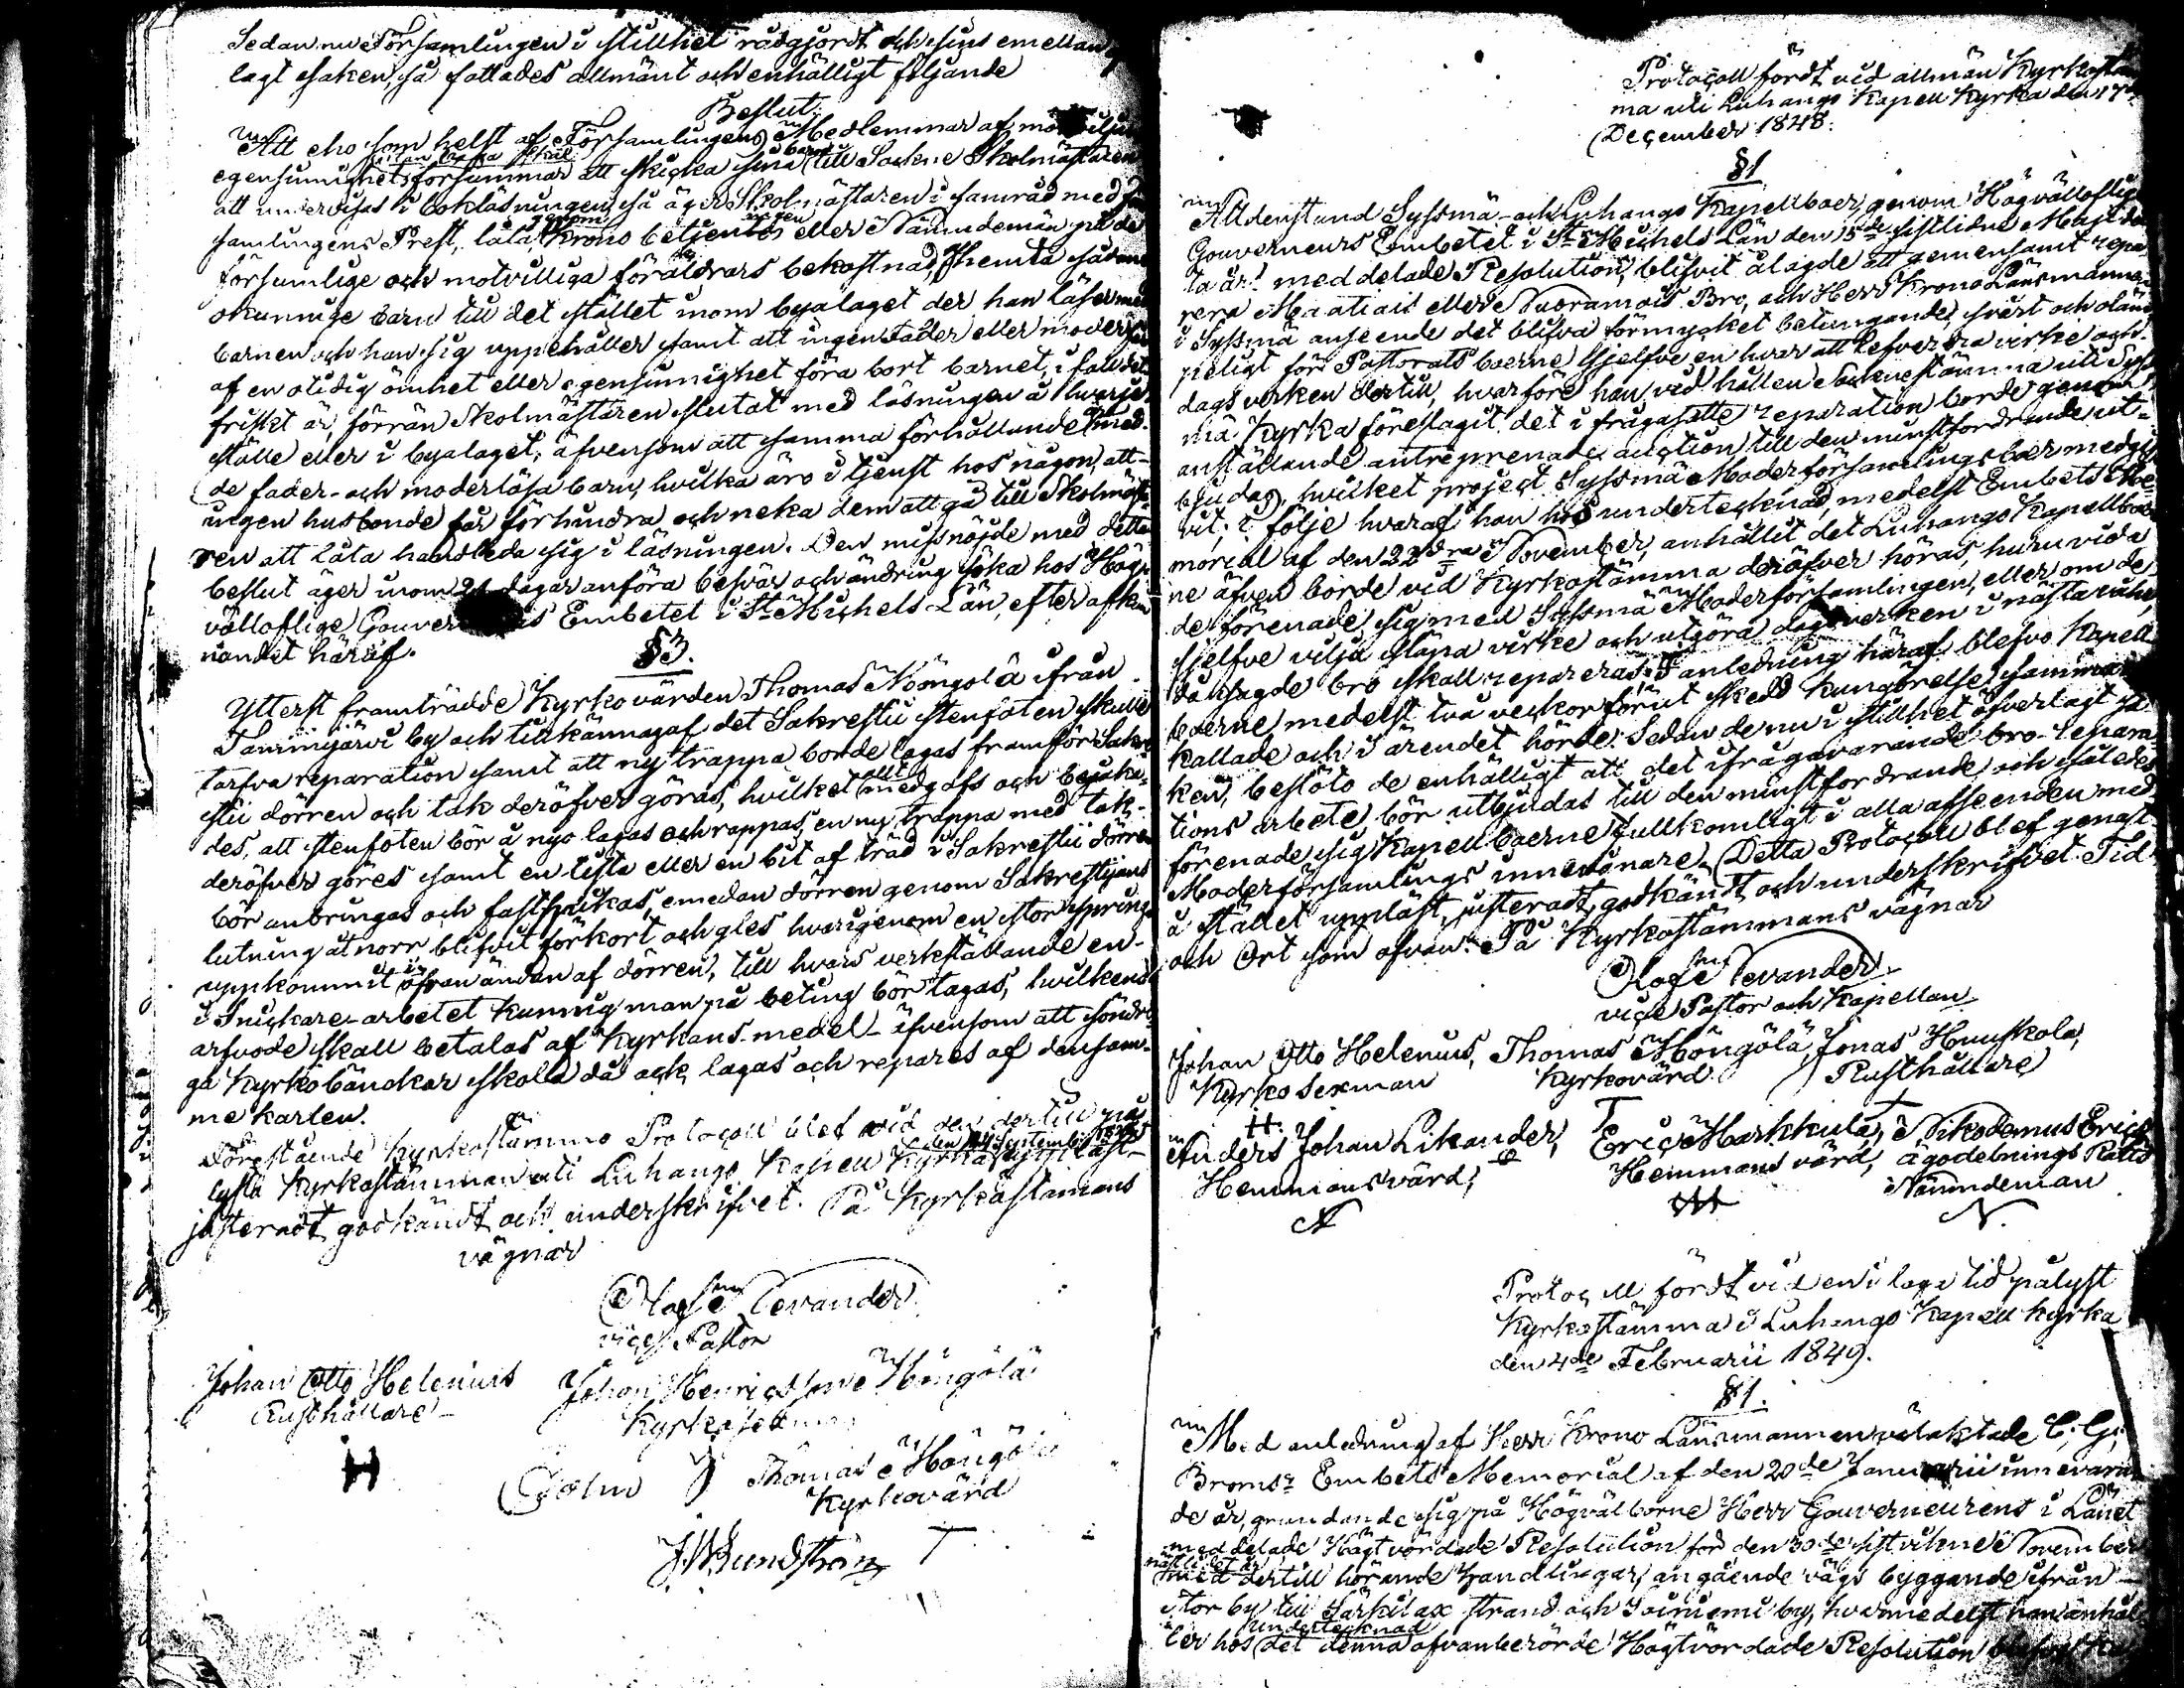 Sedan nu Församlingen i stillhet rådgjordt och sins emellan
lagt saken, så fattades allmänt och enhälligt följande
Beslut:
Att eho som helst af Församlingens Medlemmar af
utan laga skäl barn
egensinnighet försummar att skicka sina till Sockne Skolmästaren
att undervisas i bokläsningen, så äger Skolmästaren i samråd med
genom ningen
samlingens Prest, låta Krono betjente eller Nämndemän på de
försumlige och motvilliga föräldrars bekostnad afhemta sådane
okunnige barn till det stället inom byalaget der han läser med
barnen och han sig uppehåller samt att ingen Fader eller moder
af en otidig ömhet eller egensinnighet föra bort barnet, i fall det
friskt är, förrän Skolmästaren slutat med läsningen å hvarje
ställe eller i byalaget; äfvensom att samma förhållande
de fader- och moderlösa barn, hvilka äro i tjenst hos någon, att
ingen husbonde får förhindra och neka dem att gå till Skolmästa
ren att låta handleda sig i läsningen. Den missnöjde med detta
beslut äger inom 21 dagar anföra besvär och ändring söka hos Hög
välloflige Gouverneurs Embetet i St Michels Län, efter afkun
nandet häraf.
§3.
Ytterst framträdde Kyrkovärden Thomas Nöngölä ifrån
Tammijärvi by och tillkännagaf det Sakrestii stenfoten skulle
tarfva reparation samt att ny trappa borde lagas framför Sakre
stii dörren och tak deröfver göras, hvilket allt medgafs och besluta
des, att stenfoten bör å nyo lagas och rappas, en ny trappa med tak
deröfver göres samt en lista eller en bit af träd i Sakrestii dörren
bör anbringas och fastspikas, emedan dörren genom Sakrestijans
lutning åt norr blifvit förkort och gles hvarigenom en stor springa
uppkommit i öfran ändan af dörren, till hvars verkställande en
i Snickare-arbetet kunnig man på beting bör tagas, hvilkens
arfvode skall betalas af Kyrkans medel - äfvensom att söndri
ga Kyrkobänckar skola då ock lagas och repareras af densam
me karlen.
Förestående Kyrkostämmo Protocoll blef vid den dertill på
lysta Kyrkostämman uti Luhango Kapell Kyrka uppläst
justeradt, godkändt och underskrifvet. På Kyrkostämmans
vägnar
Olof Levander
vice Pastor
Johan Otto Helenius
Rusthållare
Johan Henricsson Höngölä
Kyrkosexman
H
Thomas Höngölä
Kyrkovärd
T
Protocoll fördt vid allmän Kyrkostäm
ma uti Luhango Kapell Kyrka den 17de
December 1848.
§1
Alldenstund Syssmä- och Luhango Kapellboer, genom Högvälloflige
Gouverneurs Embetet i St Michels Län den 15de sistlidne Maji det
ta år meddelade Resolution, blifvit ålagde att gemensamt repa
rera Maatiais eller Suoramois Bro, och Herr Krono Länsmannen
i Syssmä anseende det blifva förmycket betungande, svårt och oläm
peligt för Pastorats boerne sjelfve en hvar att lefverera virke och
dags verken dertill, hvarföre han vid hållen Sockenstämma uti Syss
mä Kyrka föreslagit det i frågasatte reparation borde genom
anställande entreprenade auction till den minstfordrande ut-
bjudas, hvilket project Syssmä Moderförsamlings boer medgif
vit; i följe hvaraf han hos undertecknad, medelst Embets Me
morial af den 22dra November, anhållit det Luhango Kapellboer
ne äfven borde vid Kyrkostämma deröfver höras, huruvida
de förenade sig med Syssmä Moderförsamlingen, eller om de
sjelfve vilja släpa virke och utgöra dagsverken i nästa
då sagde bro skall repareras. I anledning häraf blefvo Kapell
boerne medelst två veckor förut skedd kungörelse samman
kallade och i ärendet hörde. Sedan de nu i stillhet öfverlagt sa
ken, beslöto de enhälligt att det ifrågavarande bro-repara
tions arbete bör utbjudas till den minstfordrande och således
förenade sig Kapellboerne fullkomligt i alla afseenden med
Moderförsamlings innevånare. Detta Protocoll blef genast
å stället uppläst, justeradt, godkändt och underskrifvet. Tid
och Ort som ofvan. På Kyrkostämmans vägnar
Olof Levander
vice Pastor och Kapellan
Johan Otto Helenius, Thomas Höngölä, Jonas Honskola,
Kyrko sexman Kyrkovärd Rusthållare
H. T
Anders Johan Likander, Eric Markkula, Nikodemus Erics
Hemmansvärd, Hemmans värd, ägodelnings Rätts
Nämndeman
N.
Protocoll fördt vid en i laga tid pålyst
Kyrkostämma i Luhango Kapell Kyrka
den 4de Februarii 1849.
§1.
Med anledning af Herr Krono Länsmannen välaktade C. G.
Broms Embets Memorial af den 20de Januarii innevaran
de år, grundande sig på Högvälborne Herr Gouverneurens i Länet
meddelade Högtvördade Resolution för den 30de sistvikne November
med dertill hörande handlingar, angående vägs byggande ifrån
Storby till Särkilax strand och by, hvarmedelst han anhål
undertecknad
ler hos det denna ofvanberörde Högtvördade Resolution